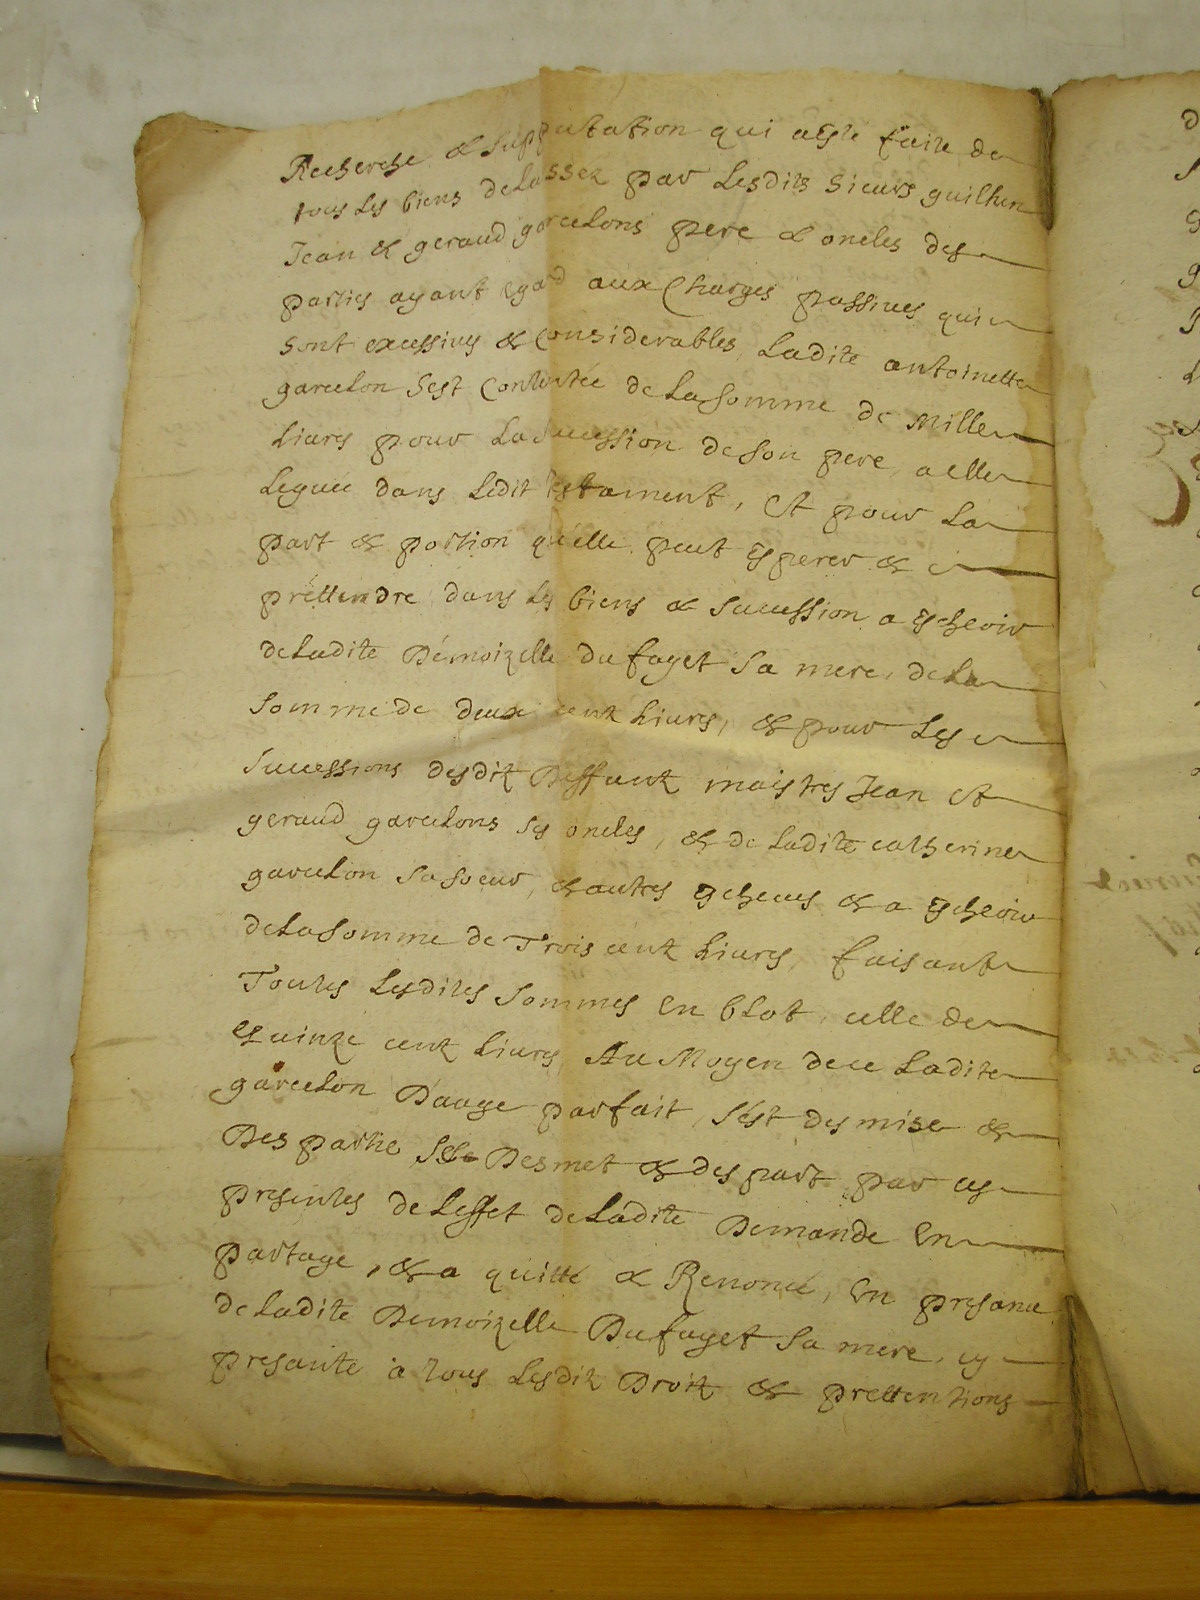 Recherche & supputation qui a este faite de
tous les biens delassez par lesdits sieurs guilhen
Jean & geraud garcelons pere & oncles des
parties ayant egard aux Charges passives qui
sont excessives & Considerables, Ladite antoinette
garcelon sest Contentée de La somme de Mille
Livres pour La succession de son pere, a elle
Leguée dans Ledit testament, Et pour La
part & portion qu'elle peut esperer &
prettendre dans Les biens & succession a escheoir
de Ladite Démoizelle Dufayet sa mere, de La
somme de deux cent Livres, & pour Les
successions desdiz Deffunz maistres Jean Et
geraud garcelons ses oncles, & de Ladite catherine
garcelon sa soeur, & autres escheues & a escheoir
de La somme de Trois cent Livres, faisant
Toutes Lesdites sommes En blot, celle de
quinze cent Livres, Au Moyen de ce Ladite
garcelon D'aage parfait, s'est desmise &
Despartie se Desmet & despart par ces
presentes de Leffet de Ladite Demande En
partage, & a quitté & Renoncé, En presance
de Ladite Demoizelle Dufayet sa mere, cy
presante à tous Lesdiz Droiz & prettentions